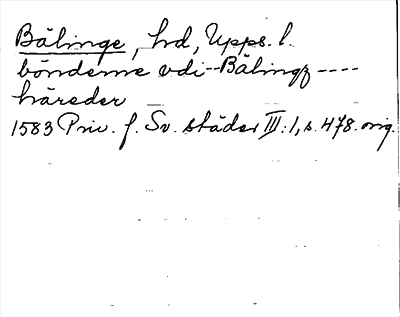 Bälinge, hd, Upps. l.
bönderne vdi -- Bälingz ----
häreder
1583 Priv. f. Sv. städer III:1, s. 478. orig.